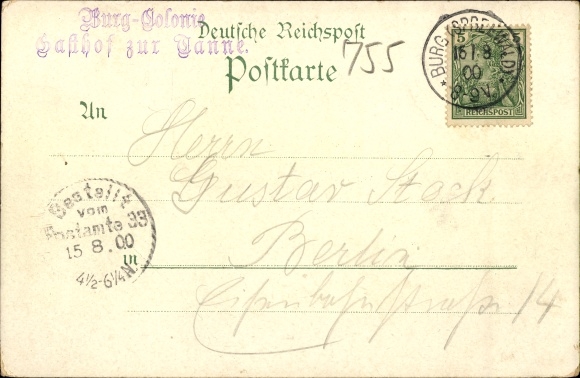 Burg-Colonie
Gasthof zur Tanne.
Deutsche Reichspost
Postkarte
755
BURG (SPREEWALD)
00
8-9V.
5
REICHSPOST
An
Herrn
Gustav Stock
in Berlin
Eisenbahnstraße 14
Bestellt
vom
Postamte 33
15 8.00
4½-6¼N.